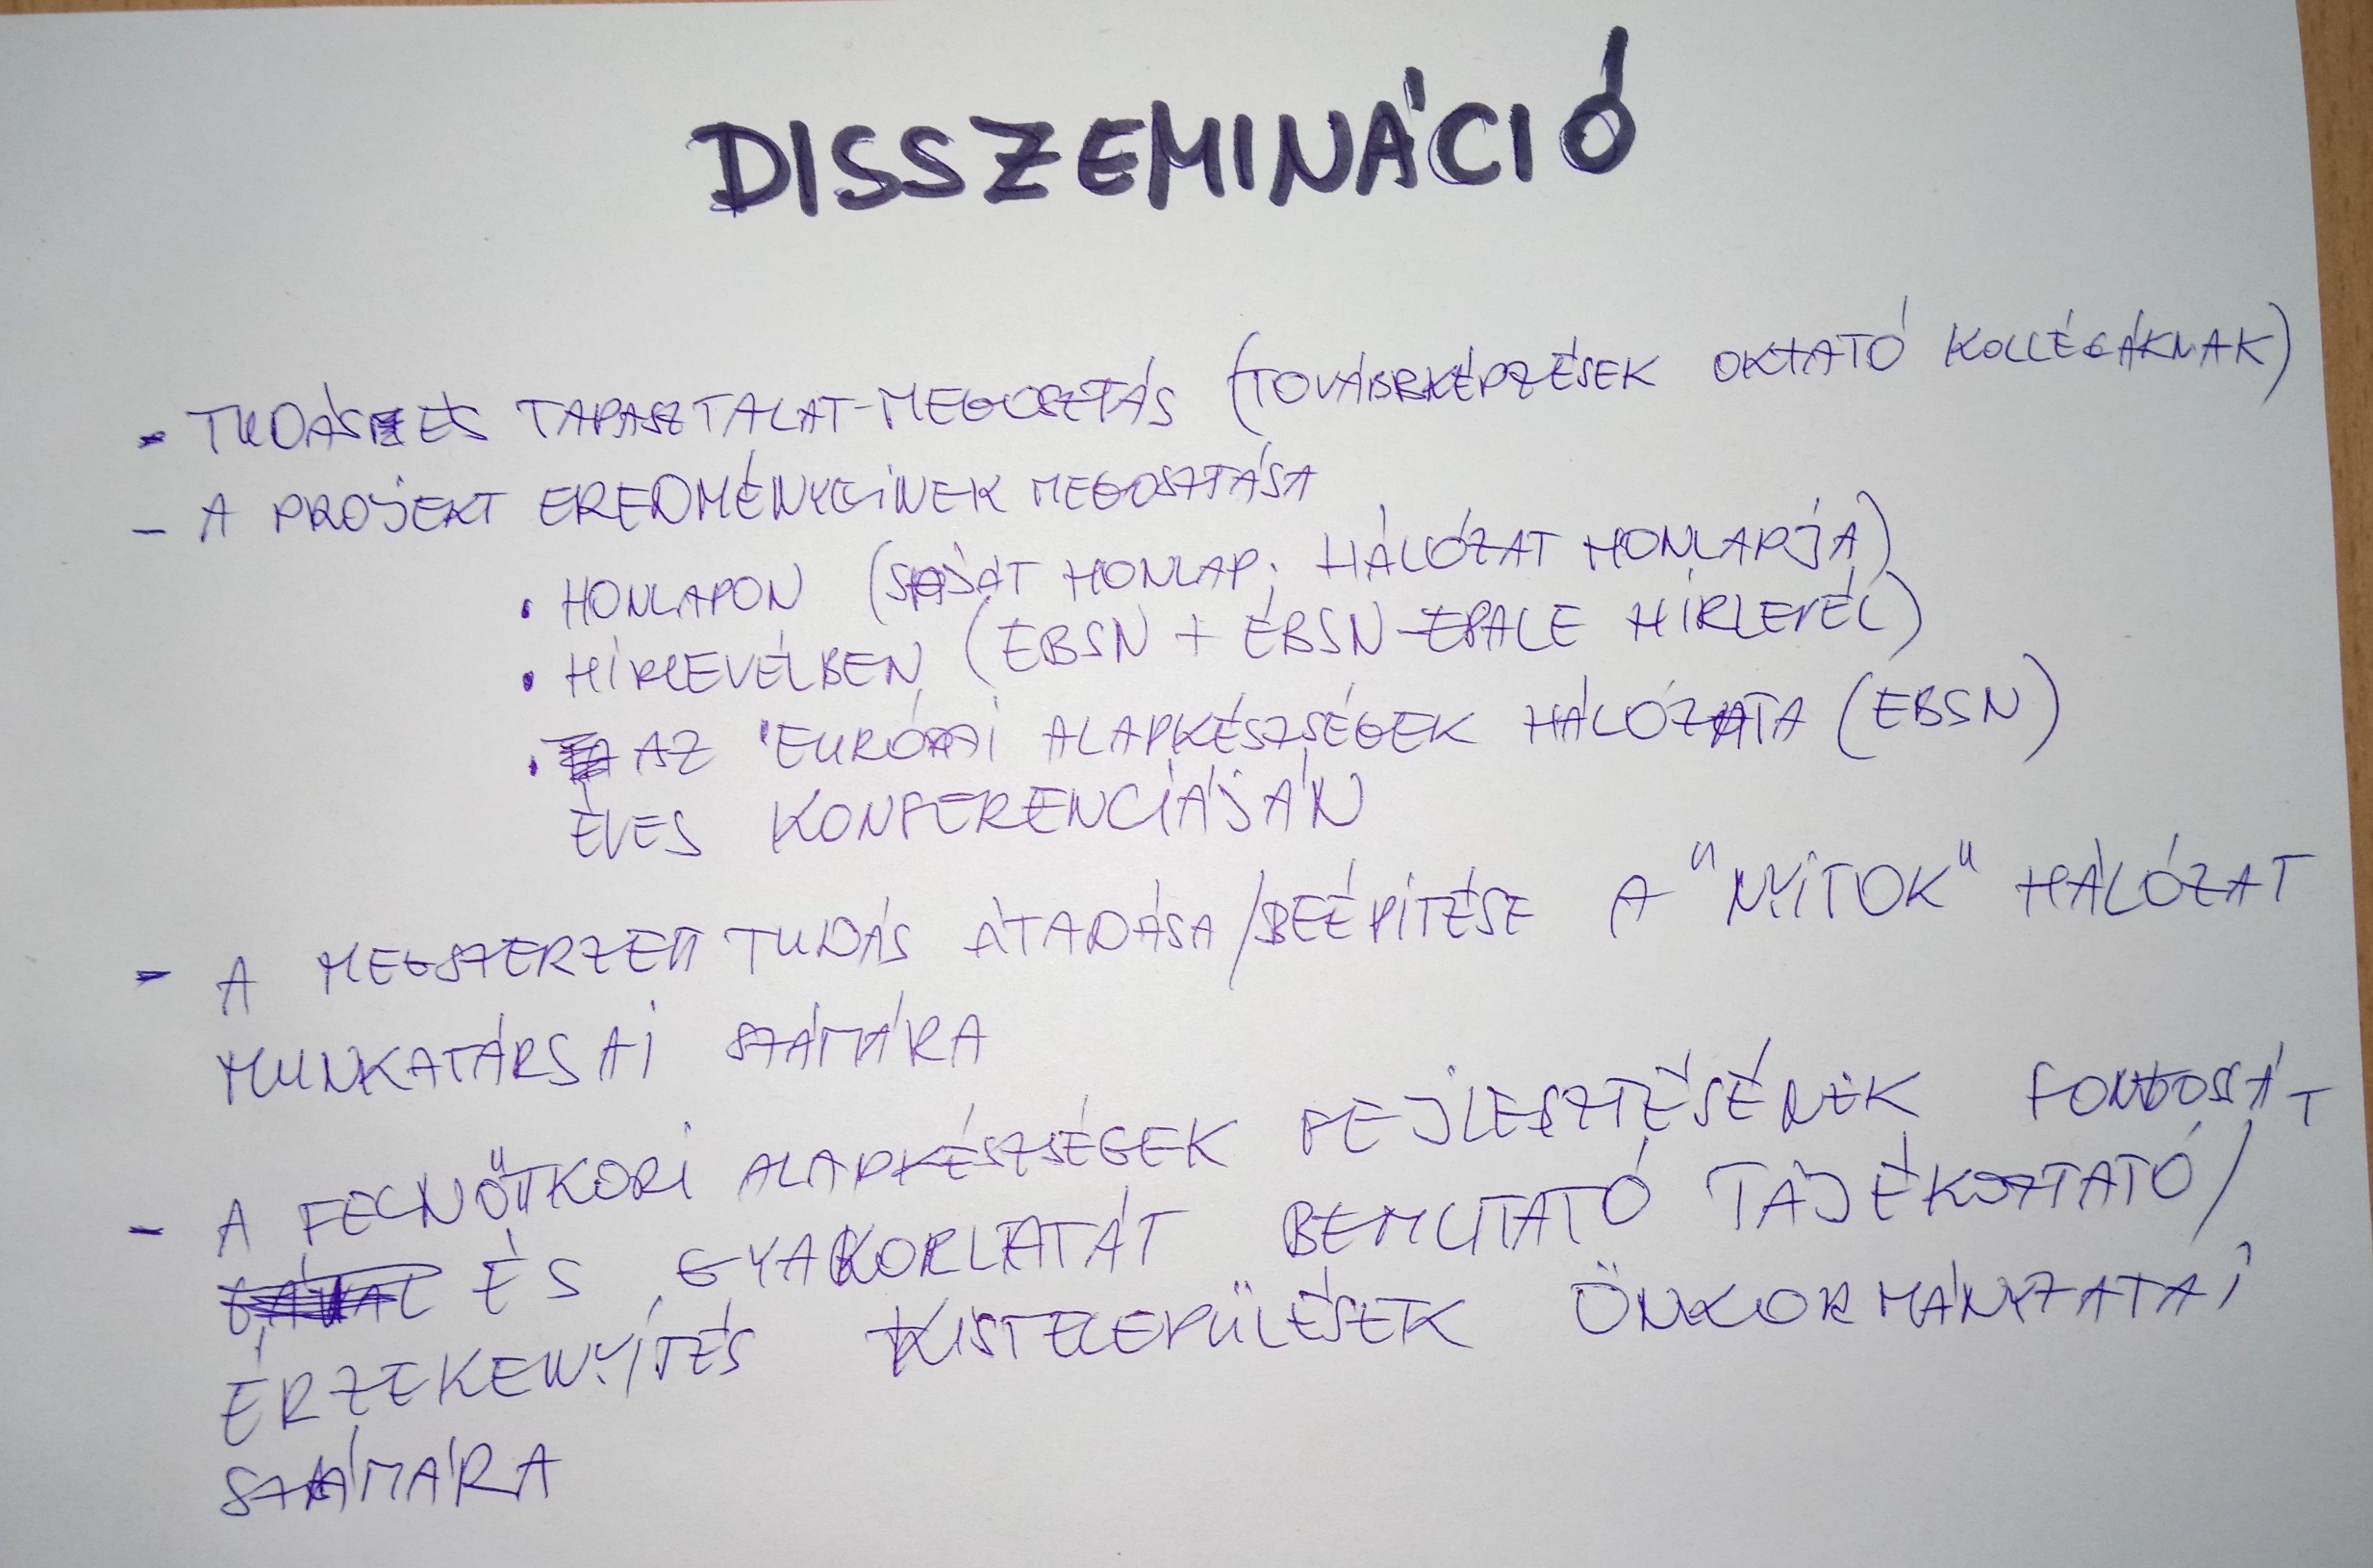 DISSZEMINÁCIÓ
- TUDÁS ÉS TAPASZTALAT-MEGOSZTÁS (TOVÁBBKÉPZÉSEK OKTATÓ KOLLÉGÁKNAK)
- A PROJEKT EREDMÉNYEINEK MEGOSZTÁSA
• HONLAPON (SAJÁT HONLAP; HÁLÓZAT HONLAPJA)
• HÍRLEVÉLBEN (EBSN + EBSN-EPALE HÍRLEVÉL)
• AZ EURÓPAI ALAPKÉSZSÉGEK HÁLÓZATA (EBSN)
ÉVES KONFERENCIÁJÁN
- A MEGSZERZETT TUDÁS ÁTADÁSA/BEÉPÍTÉSE A "NYITOK" HÁLÓZAT
MUNKATÁRSAI SZÁMÁRA
- A FELNŐTTKORI ALAPKÉSZSÉGEK FEJLESZTÉSÉNEK
ÉS GYAKORLATÁT BEMUTATÓ TÁJÉKOZTATÓ/
ÉRZÉKENYÍTÉS KISTELEPÜLÉSEK ÖNKORMÁNYZATAI
SZÁMÁRA